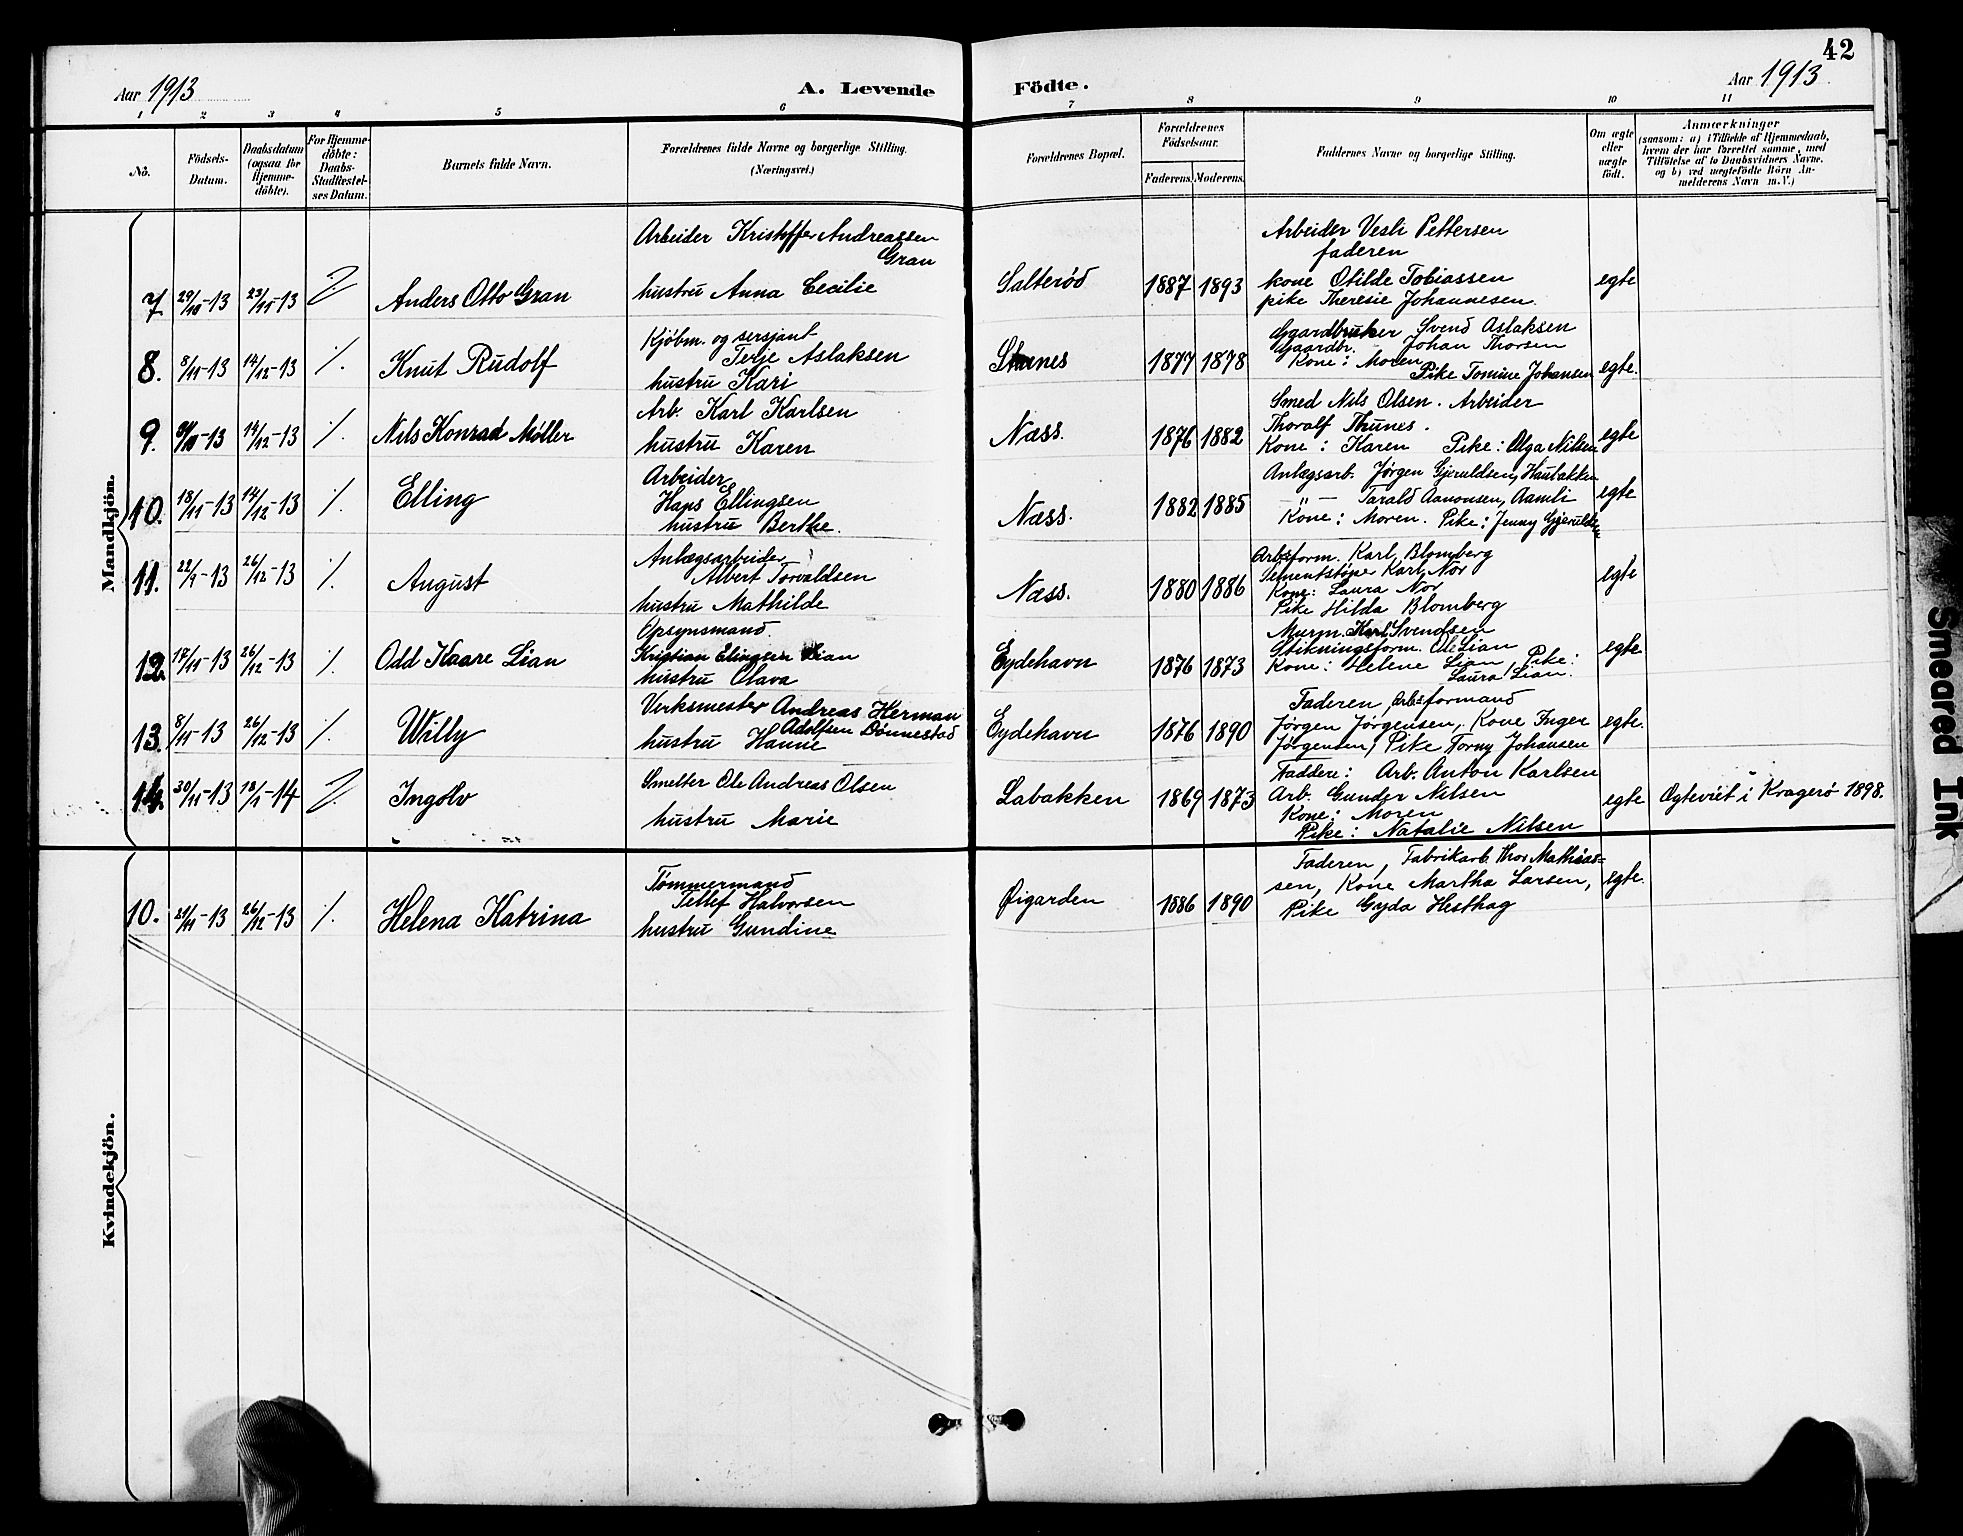 42
Aar 1913
A. Levende
Födte.
Aar 1913.
1 2 3 4 5 6 7 8 9 10 11
No.
Födsels-Datum.
Daabsdatum (ogsaa for Hjemme-döbte).
For Hjemme-döbte: Daabs-Stadfæstel-ses Datum.
Barnets fulde Navn.
Forældrenes fulde Navne og borgerlige Stilling. (Næringsvei.)
Forældrenes Bopæl.
Forældrenes Födselsaar.
Faderens. Moderens.
Faddernes Navne og borgerlige Stilling.
Om ægte eller uægte födt.
Anmærkninger
(saasom: a) i Tilfælde af Hjemmedaab,
hvem der har forrettet samme, med
Tilföielse af to Daabsvidners Navne.
og b) ved uægtefödte Börn An-
melderens Navn m. V.)
Mandkjön.
7 29/10-13 23/11-13 Anders Otto Gran
Arbeider Kristoffer Andreassen
Gran
hustru Anna Cecilie
Salterød 1887 1893
Arbeider Vesli Pettersen
faderen
kone Otilde Tobiassen
pike Theresie Johannesen.
egte
8. 8/11-13 14/12-13 ./. Knut Rudolf
Kjøbm. og sersjant
Terje Aslaksen
hustru Kari
1877 1878
Gaardbruker Svend Aslaksen
Gaardbr. Johan Thorsen
Kone: Moren
Pike Tomine Johansen
egte.
9. 14/12-13 ./. Nils Konrad Møller
Arb. Karl Karlsen
hustru Karen
Næss. 1876 1882
Smed Nils Olsen. Arbeider
Thoralf Thunes.
Kone: Karen Pike: Olga Nilsen
egte
10. 18/11-13 14/12-13 ./. Elling
Arbeider
Hans Ellingsen
hustru Berthe.
Næss. 1882 1885
Anlægsarb. Jørgen Gjeruldsen, Haubakken
—„— Tarald Aanonsen, Aamli
Kone: Moren. Pike: Jenny
egte
11. 22/9-13 26/12-13 ./. August
Anlægsarbeider
Albert Torvaldsen
hustru Mathilde
Næss. 1880 1886
Arbsform. Karl Blomberg
Sementstøper Karl Nor
Kone: Laura Nor
Pike Hilda Blomberg
egte
12. 17/11-13 26/12-13 ./. Odd Kaare Lian
Opsynsmand.
Kristian Elingsen Lian
hustru Olava
Eydehavn 1876 1873
Murm. Karl Svendsen
Stikningsform. Ole Lian
Kone: Helene Lian, Pike:
Laura Lian.
egte
13. 8/11-13 26/12-13 ./. Willy
Verksmester Andreas Herman
Adolfsen Dønnestad
hustru Hanne
Eydehavn 1876 1890
Faderen, Arbsformand
Jørgen Jørgensen, Kone Inger
Jørgensen, Pike Torny Johansen
egte.
14. 30/11-13 18/1-14 Ingolv
Smelter Ole Andreas Olsen
hustru Marie
Labakken 1869 1873
Faddere: Arb. Anton Karlsen
Arb. Gunder Nilsen
Kone: Moren
Pike: Natalie Nilsen
egte Egteviet i Kragerø 1898.
Kvindekjön.
10. 21/11-13 26/12-13 ./. Helena Katrina
Tømmermand
Tellef Halvorsen
hustru Gundine
Øigarden 1886 1890
Faderen, Fabrikarb. Thor Mathias=
sen, Kone Martha Larsen,
Pike Gyda Hesthag
egte.
Smeared Ink